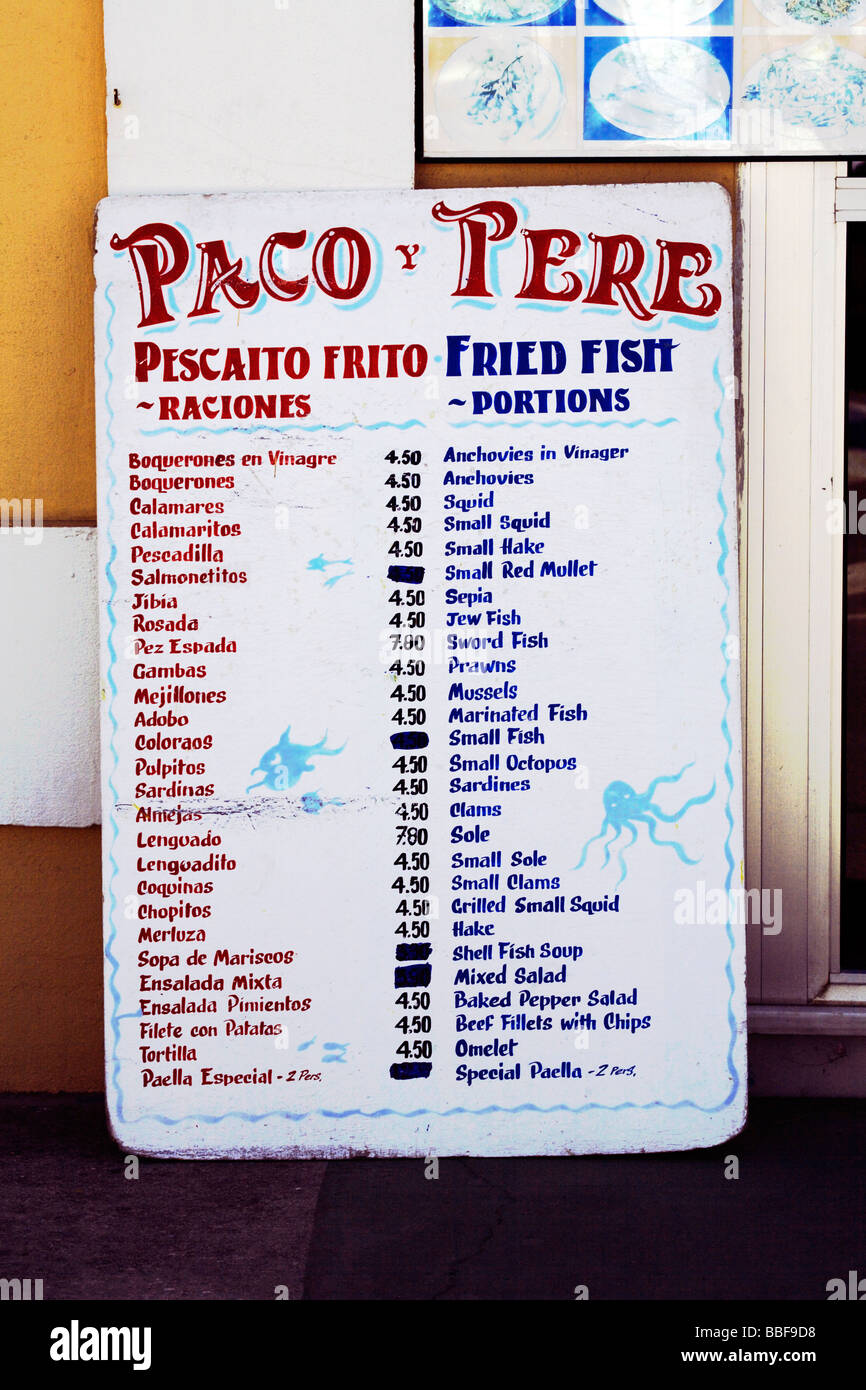 PACO Y PERE
PESCAITO FRITO · FRIED FISH
~RACIONES ~PORTIONS
Boquerones en Vinagre 4.50 Anchovies in Vinager
Boquerones 4.50 Anchovies
Calamares 4.50 Squid
Calamaritos 4.50 Small Squid
Pescadilla 4.50 Small Hake
Salmonetitos Small Red Mullet
Jibia 4.50 Sepia
Rosada 4.50 Jew Fish
Pez Espada 7.80 Sword Fish
Gambas 4.50 Prawns
Mejillones 4.50 Mussels
Adobo 4.50 Marinated Fish
Coloraos Small Fish
Pulpitos 4.50 Small Octopus
Sardinas 4.50 Sardines
Almejas 4.50 Clams
Lenguado 7.80 Sole
Lenguadito 4.50 Small Sole
Coquinas 4.50 Small Clams
Chopitos 4.50 Grilled Small Squid
Merluza 4.50 Hake
Sopa de Mariscos Shell Fish Soup
Ensalada Mixta Mixed Salad
Ensalada Pimientos 4.50 Baked Pepper Salad
Filete con Patatas 4.50 Beef Fillets with Chips
Tortilla 4.50 Omelet
Paella Especial - 2 Pers. Special Paella - 2 Pers.
alamy
Image ID: BBF9D8
www.alamy.com